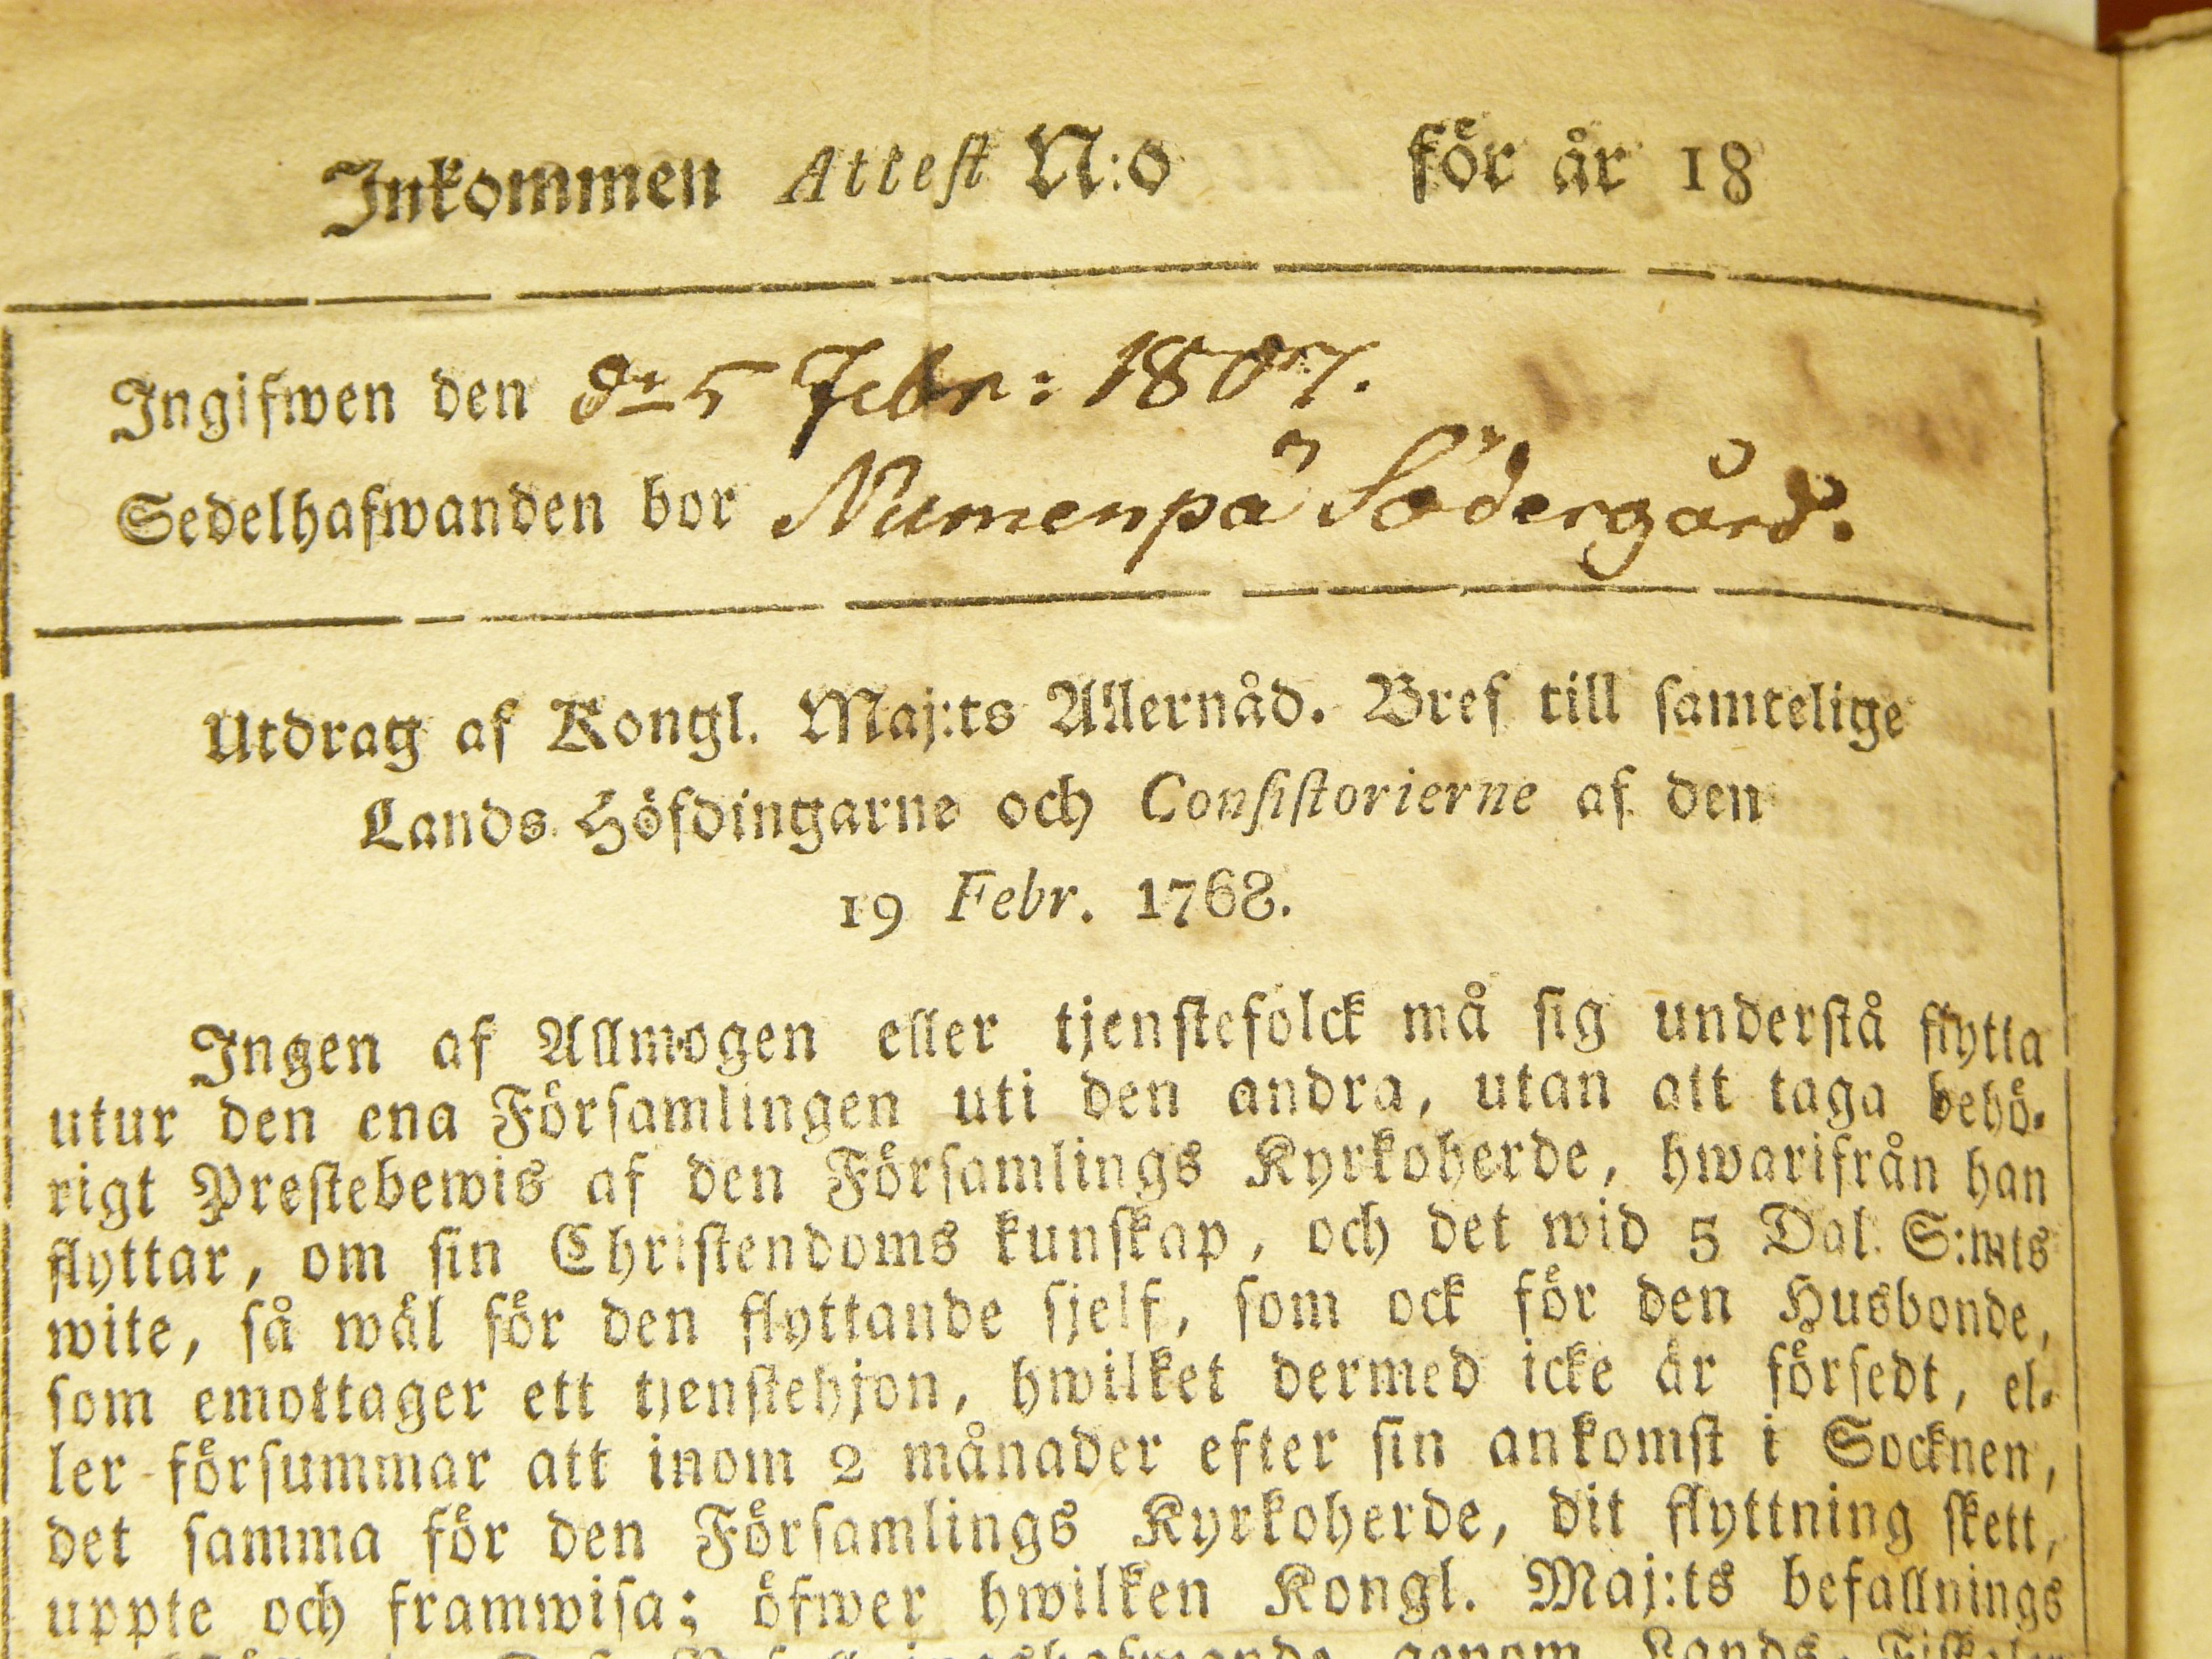 Inkommen Attest N:o för år 18
Ingifwen den d. 5 Febr: 1807.
Sedelhafwanden bor Numenpä Södergård.
Utdrag af Kongl. Maj:ts Allernåd. Bref till samtelige
Lands Höfdingarne och Consistorierne af den
19 Febr. 1768.
Ingen af Allmogen eller tjenstefolck må sig understå flytta
utur den ena Församlingen uti den andra, utan att taga behö-
rigt Prestebewis af den Församlings Kyrkoherde, hwarifrån han
flyttar, om sin Christendoms kunskap, och det wid 5 Dal. S:mts
wite, så wäl för den flyttande sjelf, som ock för den Husbonde,
som emottager ett tjenstehjon, hwilket dermed icke är försedt, el-
ler försummar att inom 2 månader efter sin ankomst i Socknen,
det samma för den Församlings Kyrkoherde, dit flyttning skett,
uppte och framwisa; öfwer hwilken Kongl. Maj:ts befallnings
genom Lands-Fiskaler